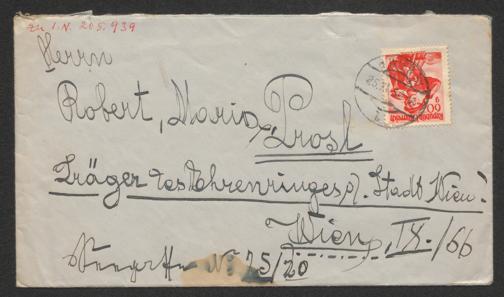 zu I.N. 205.939
Herrn
Robert, Maria Prosl
Träger des Ehrenringes d. Stadt Wien!
Wien, IX./66
No 75/20
60 g
Republik Österreich